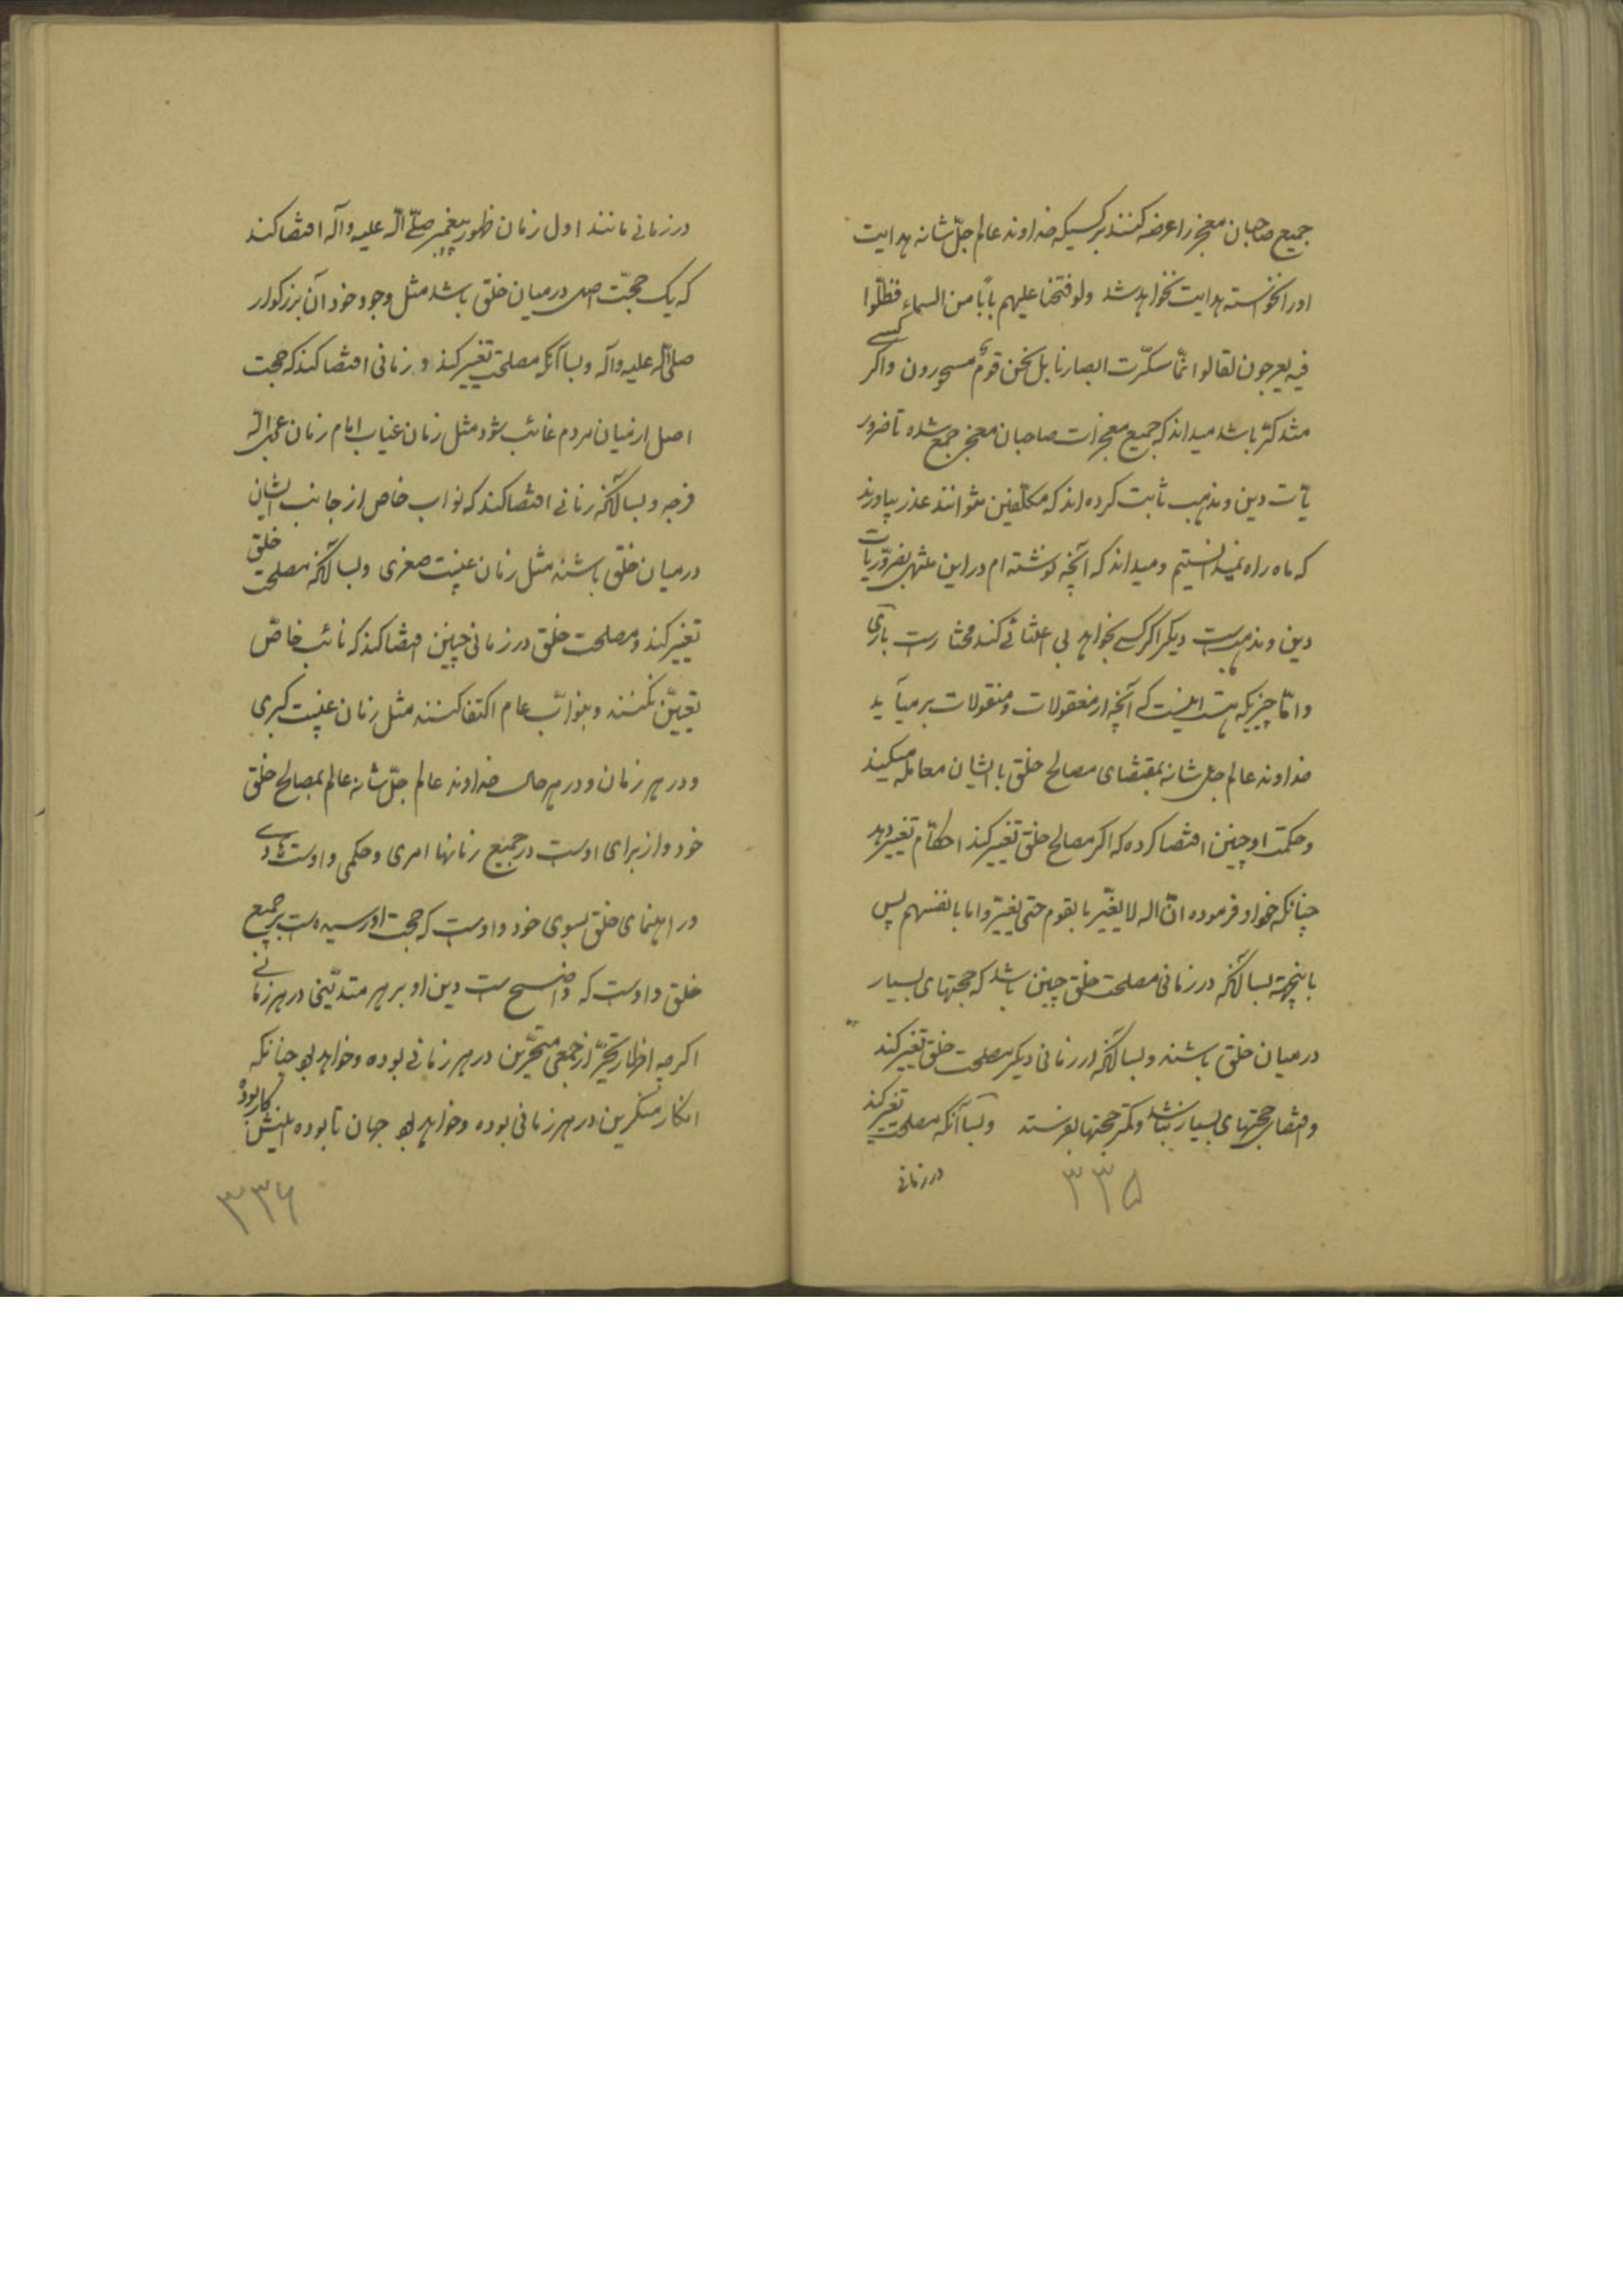 جمیع صاحبان معجز را عرضه کنند بر کسیکه خداوند عالم جلّ شانه هدایت
او را نخواسته هدایت نخواهد شد ولو فتحنا علیهم باباً من السماء فظلّوا
فیه یعرجون لقالوا انّما سکّرت ابصارنا بل نحن قومٌ مسحورون و اکر کسی
متذکر باشد میداند که جمیع معجزات صاحبان معجز جمع شده تا ضرور
یات دین و مذهب ثابت کرده اند که مکلّفین نتوانند عذر بیاورند
که ماه راه نمیدانستیم و میداند که آنچه نوشته ام در این منتهی بضروّریات
دین و مذهبست دیکر اکر کسی بخواهد بی اعتنائی کند مختارست باری
و امّا چیزیکه هست اینست که آنچه از معقولات و منقولات بر میآید
خداوند عالم جل شانه بمقتضای مصالح خلق با ایشان معامله میکند
و حکمت او چنین اقتضا کرده که اکر مصالح خلق تغییر کند احکام تغییر دهد
چنانکه خود او فرموده انّ اله لا یغیّر ما بقوم حتی یغیّروا ما بانفسهم پس
باینجهة بسا آنکه در زمانی مصلحت خلق چنین باشد که حجتهای بسیار
در میان خلق باشند و بسا آنکه در زمانی دیکر مصلحت خلق تغییر کند
و اقتضای حجتهای بسیار نباشد و کمتر حجتها بفرستد و بسا آنکه مصلحت تغییر کند
در زمانی
۳۳۵
در زمانی مانند اول زمان ظهور پیغمبر صلّی اله علیه و آله اقتضا کند
که یک حجّت اصل در میان خلق باشد مثل وجود خود آن بزرکوار
صلی اله علیه و آله و بسا آنکه مصلحت تغییر کند و زمانی اقتضا کند که حجت
اصل از میان مردم غائب شود مثل زمان غیاب امام زمان عجل اله
فرجه و بسا آنکه زمانی اقتضا کند که نواب خاص از جانب ایشان
در میان خلق باشند مثل زمان غیبت صغری و بسا آنکه مصلحت خلق
تغییر کند و مصلحت خلق در زمانی چنین اقتضا کند که نائب خاصّ
تعیین نکنند و بنوّاب عام اکتفا کنند مثل زمان غیبت کبری
و در هر زمان و در هر حال خداوند عالم جلّ شانه عالم بمصالح خلق
خود و از برای اوست در جمیع زمانها امری و حکمی و اوست هادی
و راهنمای خلق بسوی خود و اوست که حجت او رسیده است بر جمیع
خلق و اوست که واضح است دین او بر هر متدیّنی در هر زمانی
اکرچه اظهار تحیّر از جمعی متحیّرین در هر زمانی بوده و خواهد بود چنانکه
انکار منکرین در هر زمانی بوده و خواهد بود جهان تا بوده اینش کار بوده
۳۳۶